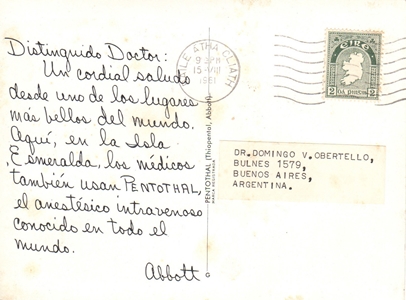 Distinguido Doctor:
Un cordial saludo
desde uno de los lugares
más bellos del mundo.
Aquí, en la Isla
Esmeralda, los médicos
también usan PENTOTHAL,
el anestésico intravenoso
conocido en todo el
mundo.
Abbott
PENTOTHAL (Thiopental, Abbott)
MARCA REGISTRADA
BAILE ÁTHA CLIATH
1961
ÉIRE
2 DÁ PHINGIN 2
DR.DOMINGO V.OBERTELLO,
BULNES 1579,
BUENOS AIRES,
ARGENTINA.